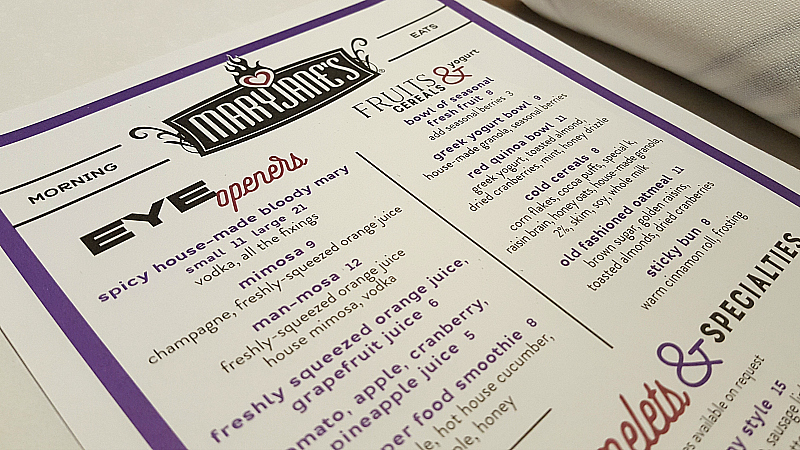 MORNING
MARYJANE'S
EATS
EYE openers
spicy house-made bloody mary
small 11 large 21
vodka, all the fixings
mimosa 9
champagne, freshly-squeezed orange juice
man-mosa 12
freshly-squeezed orange juice
house mimosa, vodka
freshly squeezed orange juice,
grapefruit juice 6
apple, cranberry,
pineapple juice 5
food smoothie 8
hot house cucumber,
honey
FRUITS & yogurt
CEREALS
bowl of seasonal
fresh fruit 8
add seasonal berries 3
greek yogurt bowl 9
house-made granola, seasonal berries
red quinoa bowl 11
greek yogurt, toasted almond,
dried cranberries, mint, honey drizzle
cold cereals 8
corn flakes, cocoa puffs, special k,
raisin bran, honey oats, house-made granola,
2%, skim, soy, whole milk
old fashioned oatmeal 11
brown sugar, golden raisins,
toasted almonds, dried cranberries
sticky bun 8
warm cinnamon roll, frosting
& SPECIALTIES
available on request
style 15
sausage